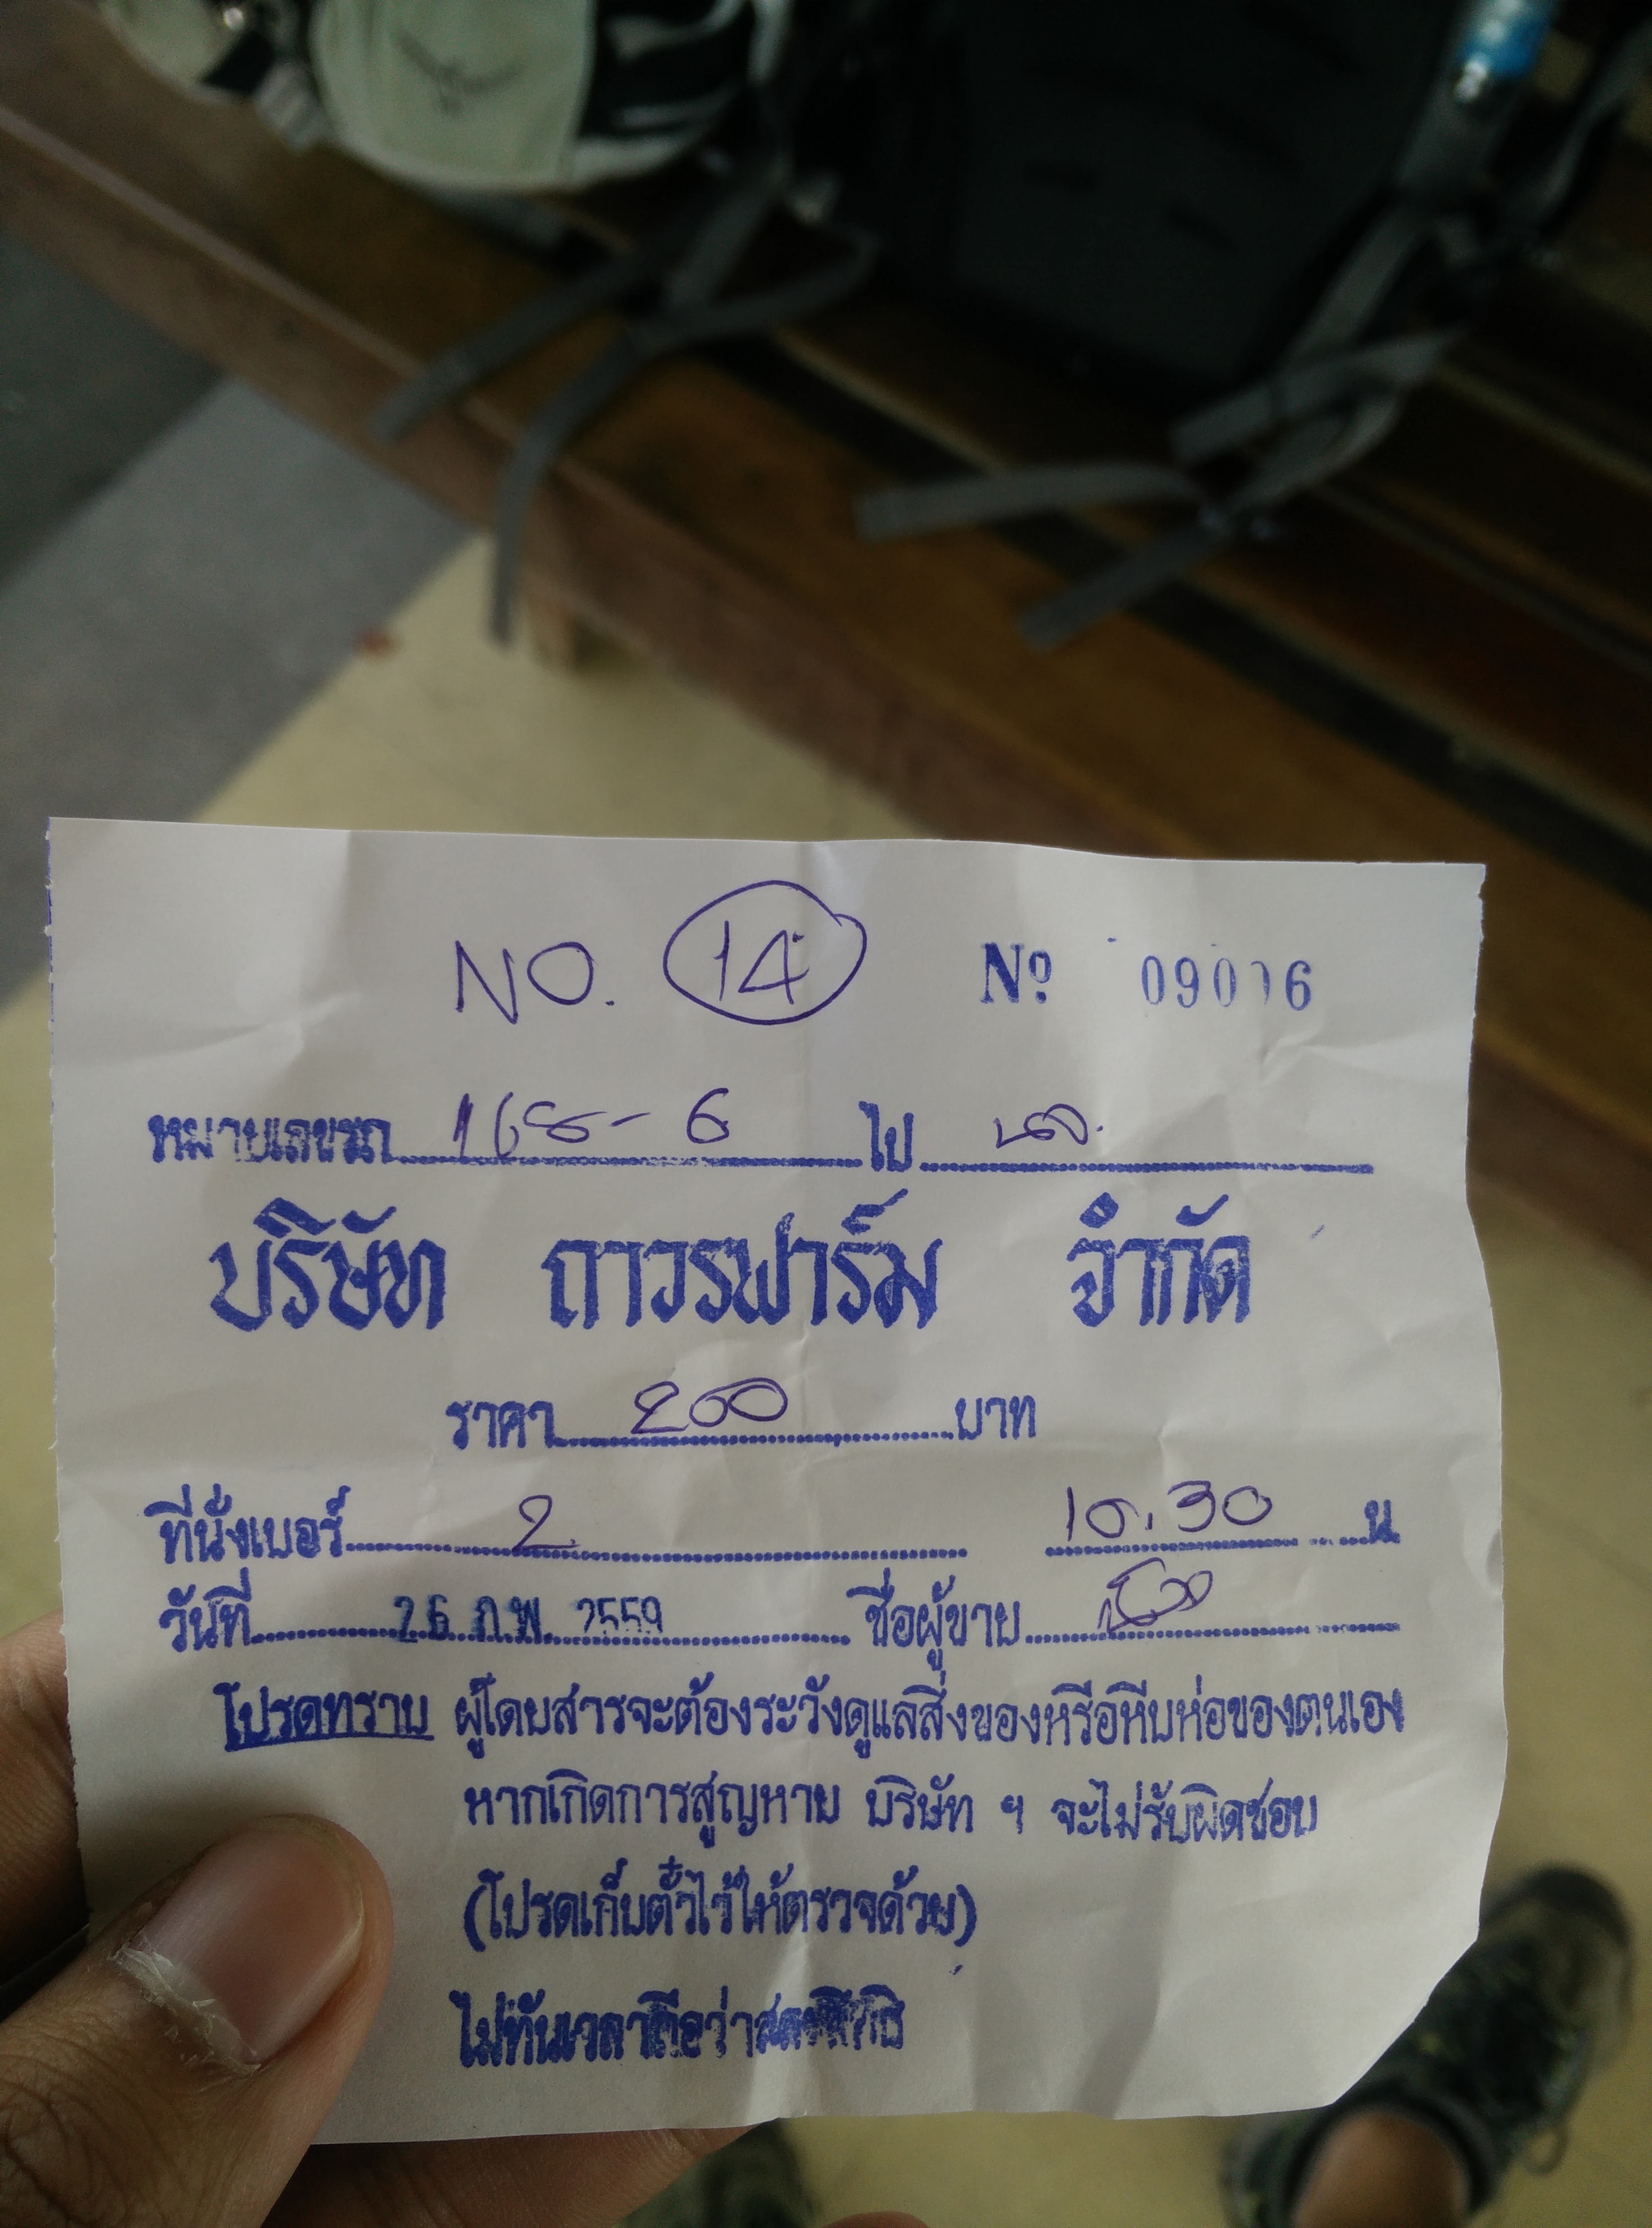 NO. 14 Nº 09016
หมายเลขรถ 168-6 ไป
บริษัท ถาวรฟาร์ม จำกัด
ราคา 200 บาท
ที่นั่งเบอร์ 2 10.30 น
วันที่ 26 ก.พ. 2559 ชื่อผู้ขาย
โปรดทราบ ผู้โดยสารจะต้องระวังดูแลสิ่งของหรือหีบห่อของตนเอง
หากเกิดการสูญหาย บริษัท ฯ จะไม่รับผิดชอบ
(โปรดเก็บตั๋วไว้ให้ตรวจด้วย)
ไม่ทันเวลาถือว่าสละสิทธิ